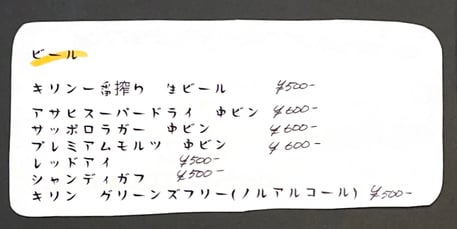 ビール
キリン一番搾り 生ビール ¥500-
アサヒスーパードライ 中ビン ¥600-
サッポロラガー 中ビン ¥600-
プレミアムモルツ 中ビン ¥600-
レッドアイ ¥500-
シャンディガフ ¥500-
キリン グリーンズフリー(ノルアルコール) ¥500-